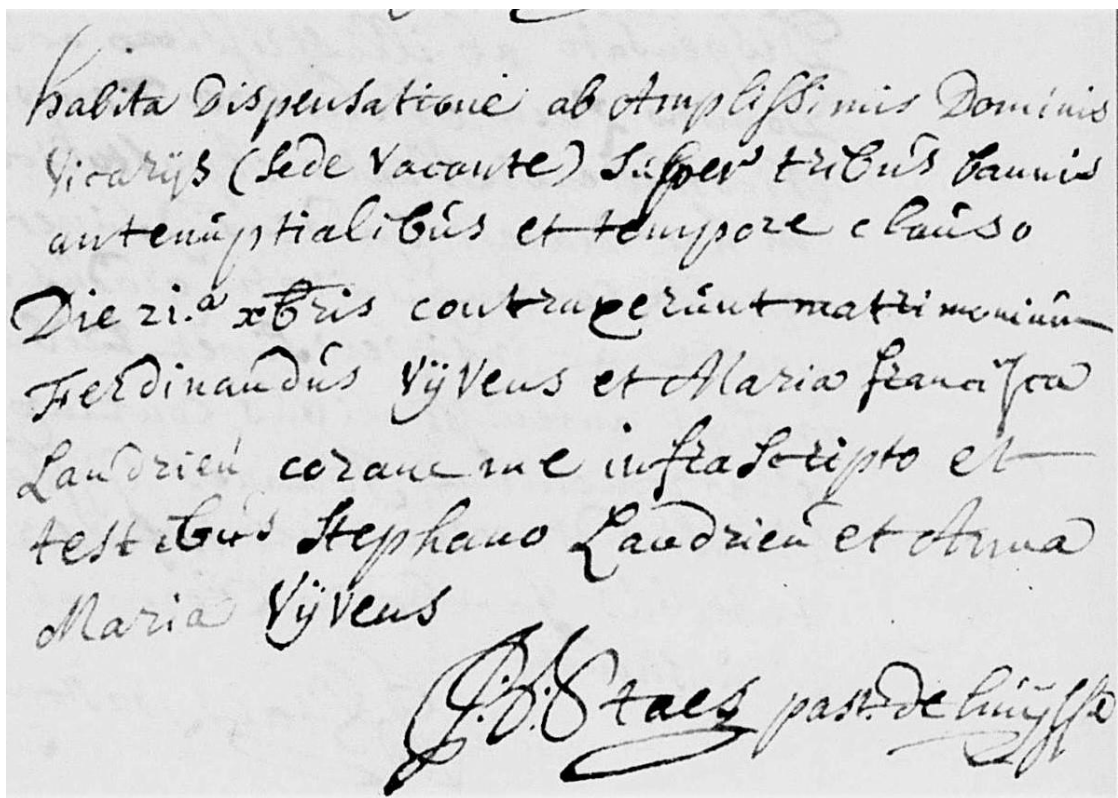 habita Dispensatione ab Amplissimis Dominis
Vicarijs (Sede Vacante) super tribus bannis
antenuptialibus et tempore clauso
Die 21.a xbris contraxerunt matrimonium
Ferdinandus Vÿvens et Maria francisca
Landrieu coram me infrascripto et
testibus Stephano Landrieu et Anna
Maria Vÿvens
J: B: Staes past. de huÿsse